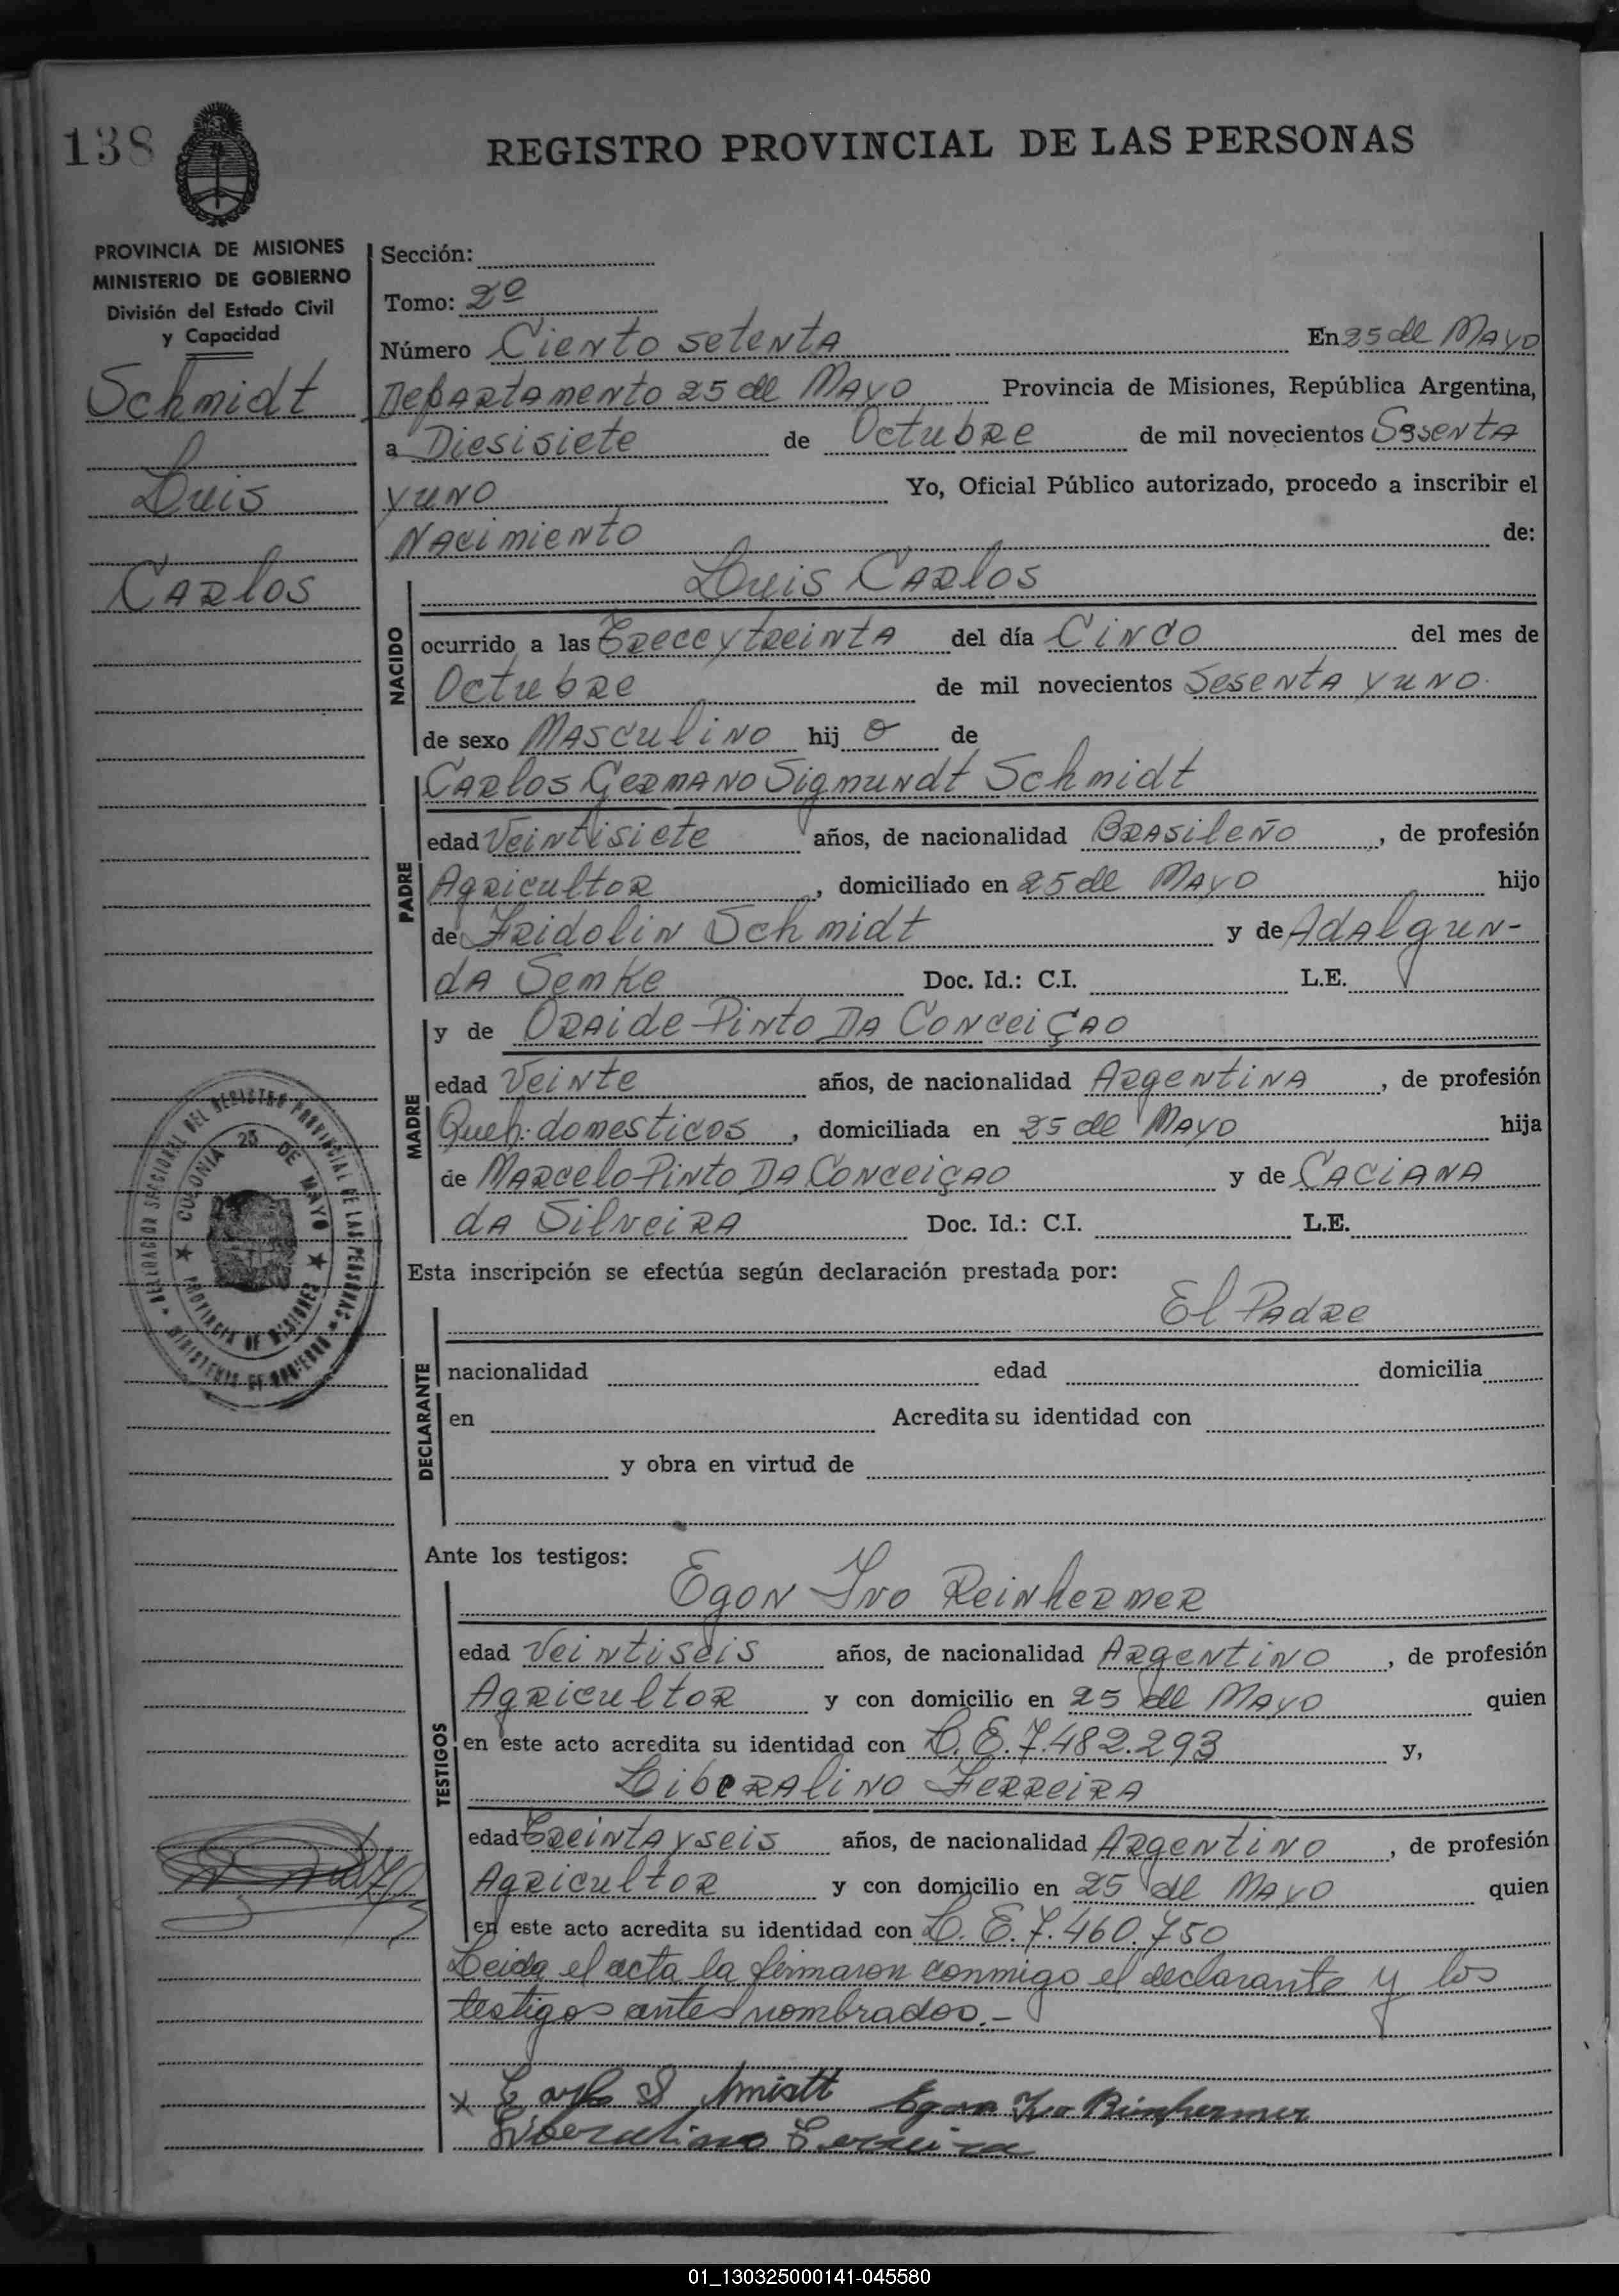 138
REGISTRO PROVINCIAL DE LAS PERSONAS
PROVINCIA DE MISIONES
MINISTERIO DE GOBIERNO
División del Estado Civil
y Capacidad
Schmidt
Luis
Carlos
Sección:
Tomo: 2º
Número Ciento setenta En 25 de Mayo
Departamento 25 de Mayo Provincia de Misiones, República Argentina,
a Diesisiete de Octubre de mil novecientos Sesenta
y uno Yo, Oficial Público autorizado, procedo a inscribir el
Nacimiento de:
NACIDO
Luis Carlos
ocurrido a las Trece y treinta del día Cinco del mes de
Octubre de mil novecientos Sesenta y uno.
de sexo Masculino hij o de
PADRE
Carlos Germano Sigmundt Schmidt
edad Veintisiete años, de nacionalidad Brasileño, de profesión
Agricultor, domiciliado en 25 de Mayo hijo
de Fridolin Schmidt y de Adalgun-
da Semke Doc. Id.: C.I. L.E.
MADRE
y de Oraide Pinto Da Conceiçao
edad Veinte años, de nacionalidad Argentina, de profesión
Queh. domesticos, domiciliada en 25 de Mayo hija
de Marcelo Pinto Da Conceiçao y de Caciana
da Silveira Doc. Id.: C.I. L.E.
COLONIA 25 DE MAYO
PROVINCIA DE MISIONES
DEL REGISTRO PROVINCIAL DE LAS PERSONAS
MINISTERIO DE GOBIERNO
Esta inscripción se efectúa según declaración prestada por:
DECLARANTE
El Padre
nacionalidad edad domicilia
en Acredita su identidad con
y obra en virtud de
Ante los testigos:
TESTIGOS
Egon Ivo Reinhermer
edad Veintiseis años, de nacionalidad Argentino, de profesión
Agricultor y con domicilio en 25 de Mayo quien
en este acto acredita su identidad con L.E. 7.482.293 y,
Liberalino Ferreira
edad Treinta y seis años, de nacionalidad Argentino, de profesión
Agricultor y con domicilio en 25 de Mayo quien
en este acto acredita su identidad con L.E. 7.460.750
Leida el acta la firmaron conmigo el declarante y los
testigos antes nombrados.-
x S Egon Ivo
Liberalino Ferreira
01_130325000141-045580